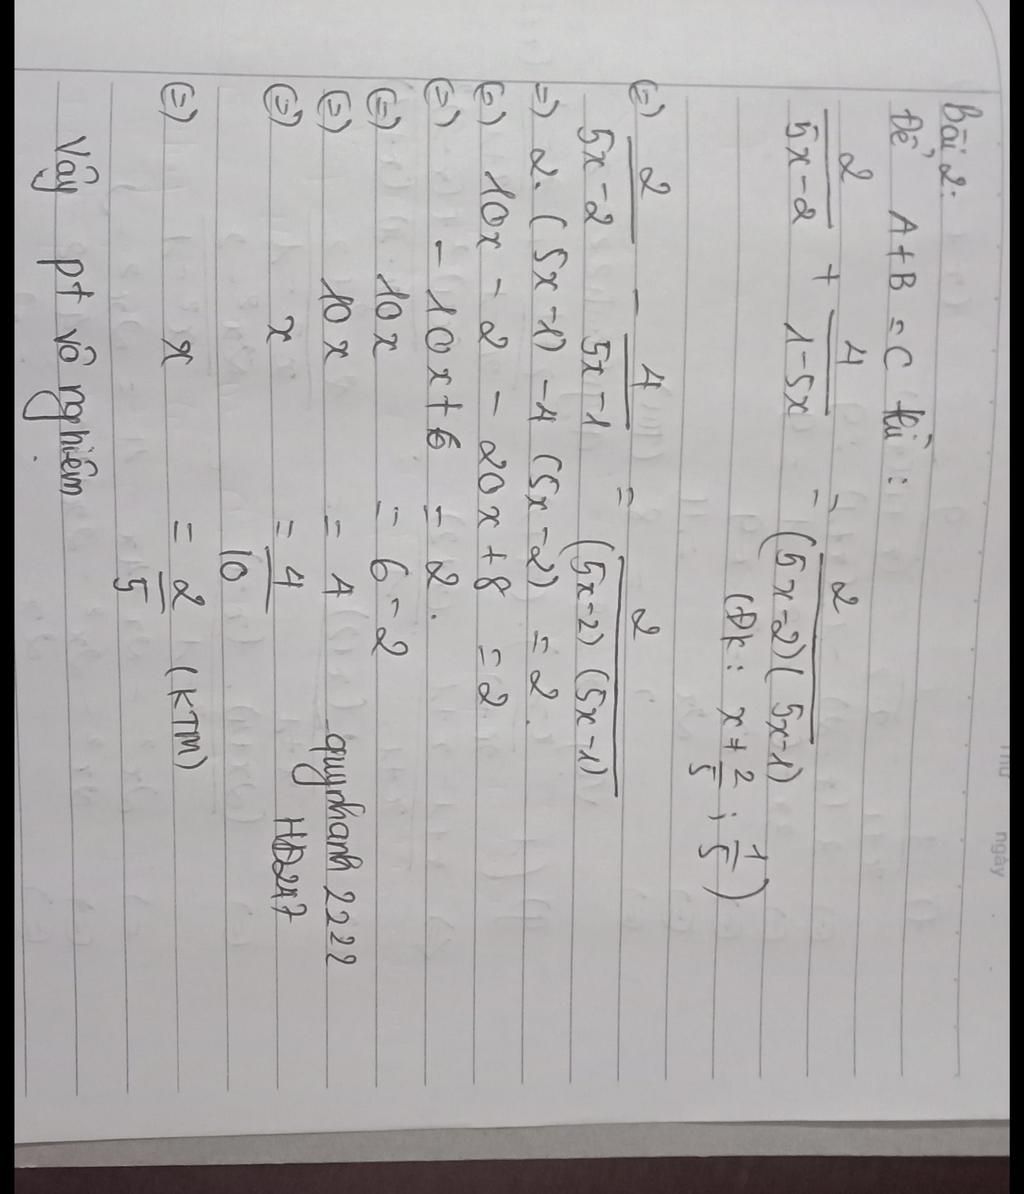 Bài 2:
Để A+B = C thì :
2/(5x-2) + 4/(1-5x) = 2/((5x-2)(5x-1))
(Đk: x ≠ 2/5 ; 1/5)
(=) 2/(5x-2) - 4/(5x-1) = 2/((5x-2)(5x-1))
=) 2.(5x-1) -4 (5x-2) = 2.
(=) 10x - 2 - 20x + 8 = 2
(=) - 10x + 6 = 2.
(=) 10x = 6-2
(=) 10x = 4
quynhanh 2222
(=) x = 4/10
HĐ247
(=) x = 2/5 (KTM)
Vậy pt vô nghiệm
thứ
ngày